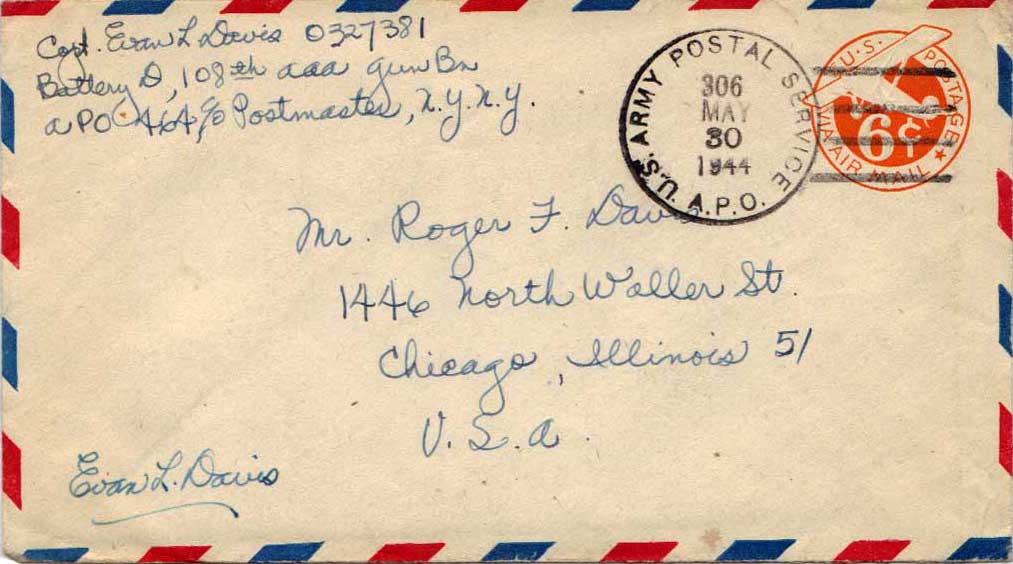 Capt. Evan L Davis 0327381
Battery D, 108th aaa gun Bn
APO 464, c/o Postmaster, N.Y. N.Y.
U.S. ARMY POSTAL SERVICE
306
MAY
30
1944
A.P.O.
U.S. POSTAGE
6¢
VIA AIR MAIL
Mr. Roger F. Davis
1446 North Waller St.
Chicago, Illinois 51
U.S.A.
Evan L. Davis